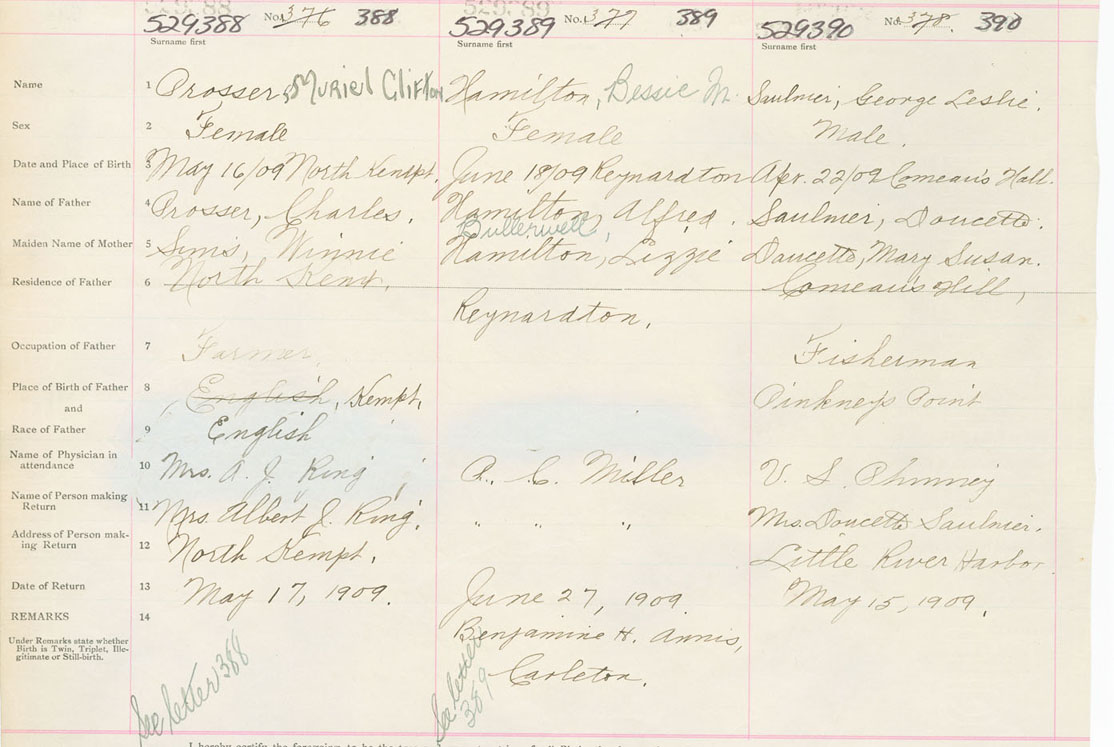 529388 No. 376 388 529389 No. 377 389 529390 No. 378. 390
Surname first Surname first Surname first
Name 1 Prosser, Muriel Clifton Hamilton, Bessie M. Saulnier, George Leslie.
Sex 2 Female Female Male.
Date and Place of Birth 3 May 16/09 North Kempt. June 18/09 Reynardton Apr. 22/09 Comeau's Hall.
Name of Father 4 Prosser, Charles. Hamilton, Alfred. Saulnier, Doucette.
Bullerwell,
Maiden Name of Mother 5 Sims, Winnie Hamilton, Lizzie Doucette, Mary Susan.
Residence of Father 6 North Kemt. Comeau's Hill,
Reynardton.
Occupation of Father 7 Farmer. Fisherman
Place of Birth of Father 8 English, Kempt, Pinkney's Point
and
Race of Father 9 English
Name of Physician in
attendance 10 Mrs. A. J. Ring A. C. Miller V. S. Phinney
Name of Person making
Return 11 Mrs. Albert J. Ring. " " " Mrs. Doucette Saulnier.
Address of Person mak-
ing Return 12 North Kempt. Little River Harbor.
Date of Return 13 May 17, 1909. June 27, 1909. May 15, 1909.
REMARKS 14 Benjamine H. Annis,
Under Remarks state whether
Birth is Twin, Triplet, Ille-
gitimate or Still-birth.
Carleton.
See letter 388
See letter 389